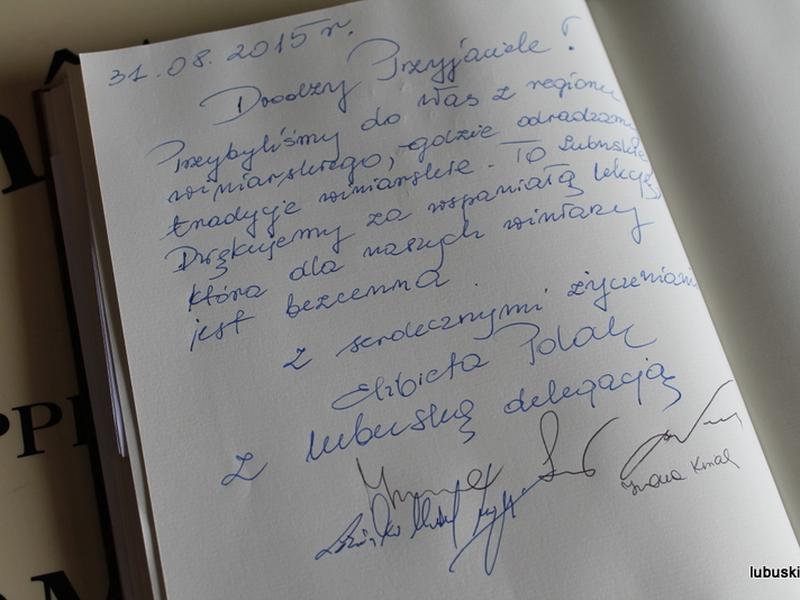 31.08.2015 r.
Drodzy Przyjaciele!
Przybyliśmy do Was z regionu
winiarskiego, gdzie odradzamy
tradycje winiarskie. To Lubuskie
Dziękujemy za wspaniałą lekcję,
która dla naszych winiarzy
jest bezcenna.
Z serdecznymi życzeniami
Elżbieta Polak
z lubuską delegacją
lubuski